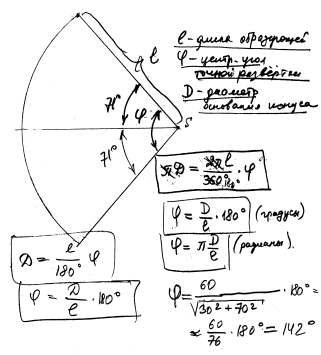 ℓ
ℓ - длина образующей
φ - центр. угол
точной развёртки
D - диаметр
основания конуса
71°
φ
S
71°
πD = 2πℓ/360° 180° · φ
φ = D/ℓ · 180° (градусы)
φ = π D/ℓ (радианы).
D = ℓ/180° φ
φ = D/ℓ · 180°
φ = 60/√(30² + 70²) · 180° =
≈ 60/76 · 180° = 142°